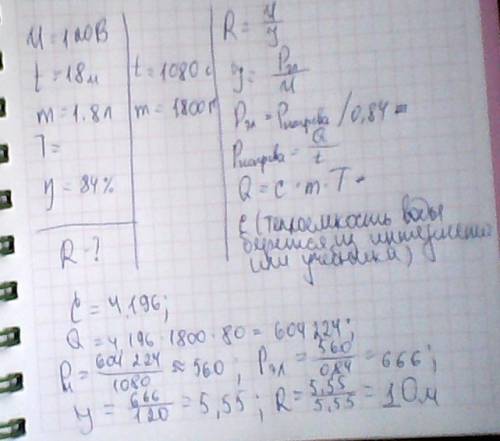 U = 120В
t = 18м t = 1080 с
m = 1.8л m = 1800г
T =
y = 84%
R - ?
R = U/y
y = Pэл/U
Pэл = Pнагрева/0,84
Pнагрева = Q/t
Q = c · m · T
c (теплоемкость воды
берется из интернета
или учебника)
C = 4,196;
Q = 4,196 · 1800 · 80 = 604 224;
Pн = 604 224/1080 ≈ 560; Pэл = 560/0,84 = 666;
y = 666/120 = 5,55; R = 5,55/5,55 = 1 Ом